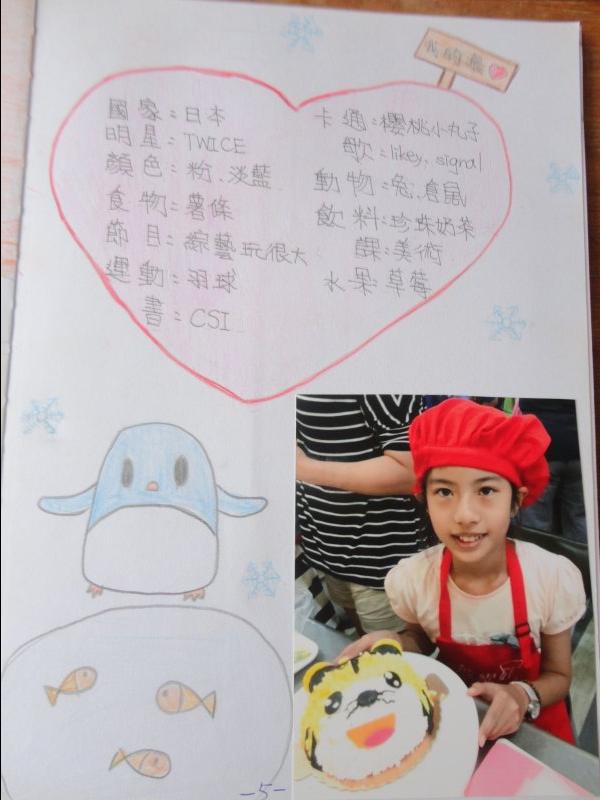 我的最
國家：日本
明星：TWICE
顏色：粉、淡藍
食物：薯條
節目：綜藝玩很大
運動：羽球
書：CSI
卡通：櫻桃小丸子
歌：likey、signal
動物：兔、倉鼠
飲料：珍珠奶茶
課：美術
水果：草莓
-5-